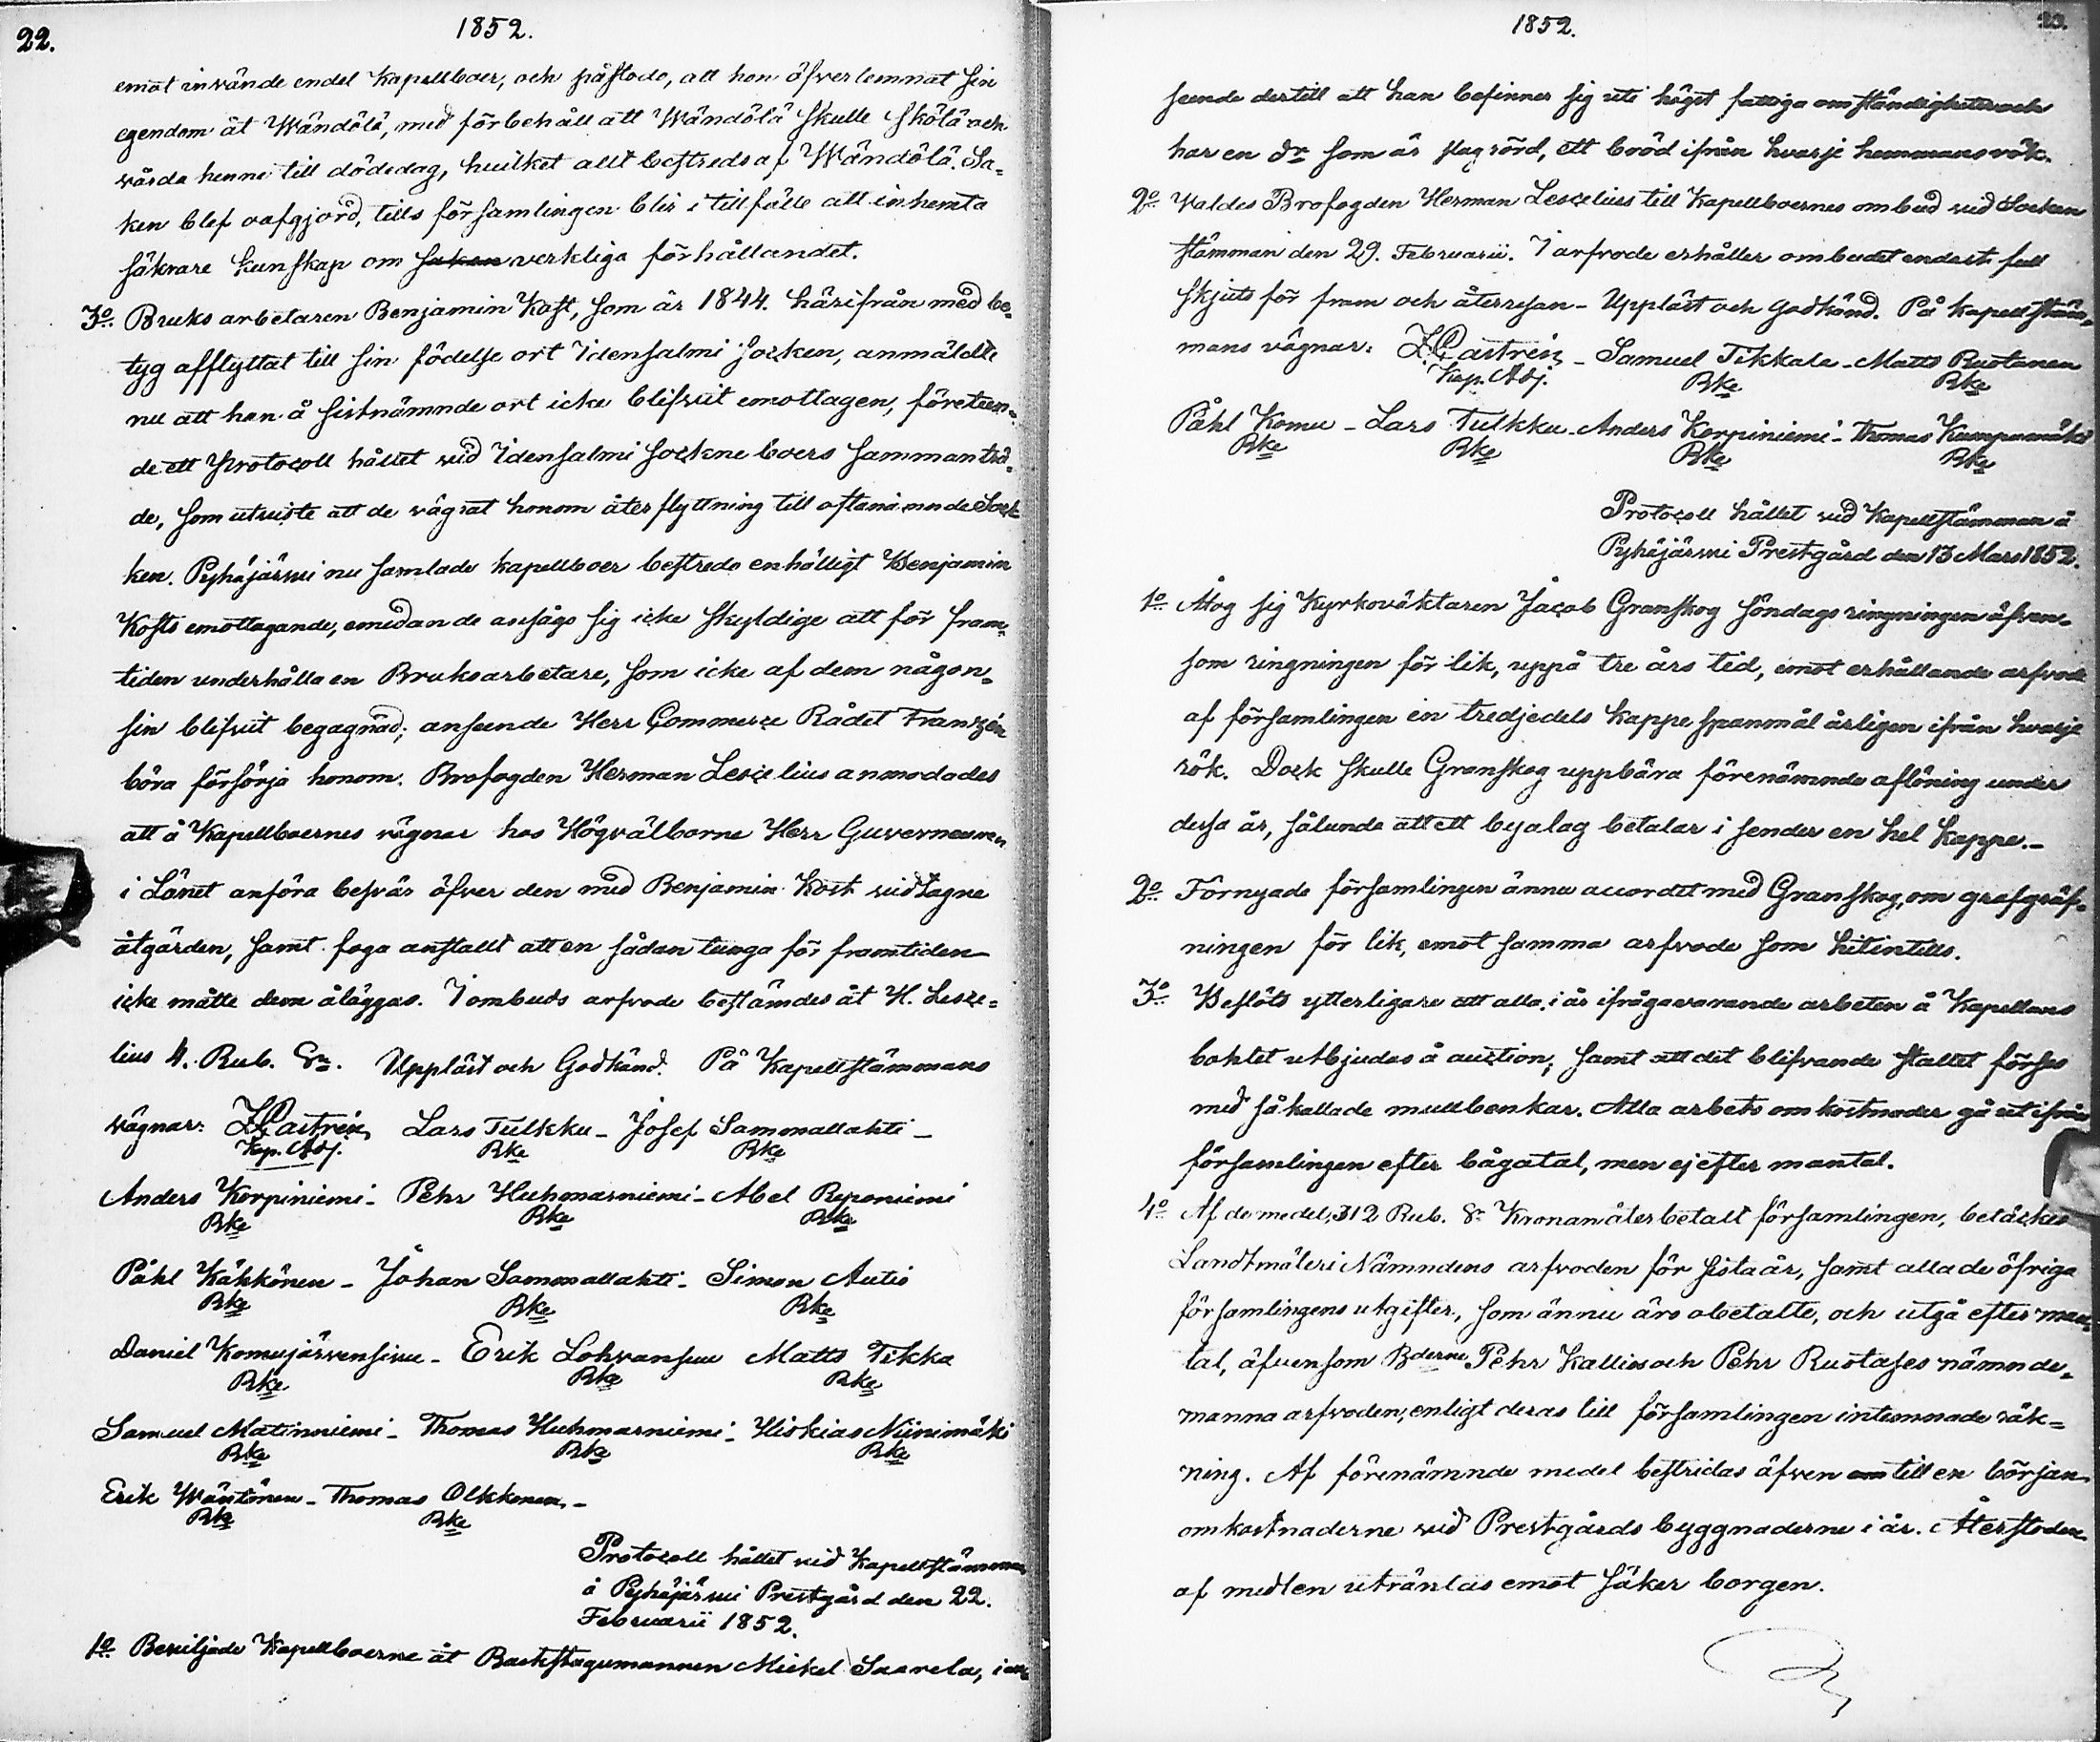 22.
1852.
emot invände endel Kapellboer, och påstodo, att hon öfverlemnat sin
egendom åt Wändölä, med förbehåll att Wändölä skulle sköla och
vårda henne till dödedag, hvilket allt bestreds af Wändölä. Sa=
ken blef oafgjord, tills församlingen blir i tillfälle att inhemta
säkrare kunskap om saken verkliga förhållandet.
3o. Bruks arbetaren Benjamin Kost, som år 1844. härifrån med be=
tyg afflyttat till sin födelse ort Idensalmi Socken, anmälde
nu att han å sistnämnde ort icke blifvit emottagen, företeen=
de ett Protocoll hållet vid Idensalmi Sockne boers sammanträ=
de, som utviste att de vägrat honom återflyttning till oftanämnde Sock
ken. Pyhäjärvi nu samlade kapellboer bestredo enhälligt Benjamin
Kosts emottagande, emedan de ansågo sig icke skyldige att för fram=
tiden underhålla en Bruksarbetare, som icke af dem någon=
sin blifvit begagnad; anseende Herr Commerce Rådet Frantzén
böra försörja honom. Brofogden Herman Lescelius anmodades
att å Kapellboernes vägnar hos Högvälborne Herr Guverneuren
i Länet anföra besvär öfver den med Benjamin Kost vidtagne
åtgärden, samt foga anstallt att en sådan tunga för framtiden
icke måtte dem åläggas. I ombuds arfvode bestämdes åt H. Lesce=
lius 4. Rub. Sr. Uppläst och Godkänd. På Kapellstämmans
vägnar: Z. Castrén Lars Tulkku - Josef Sammallahti -
Kap. Adj. Bke Bke
Anders Korpiniemi - Pehr Huhmarniemi - Abel Reponiemi
Bke Bke Bke
Påhl Käkkönen - Johan Sammallahti - Simon Autio
Bke Bke Bke
Daniel Komujärvensivu - Erik Lohvansuu Matts Tikka
Bke Bke Bke
Samuel Matinniemi - Thomas Huhmarniemi - Hiskias Niinimäki
Bke Bke Bke
Erik Wäntönen - Thomas Olkkonen. -
Bke Bke
Protocoll hållet vid Kapellstämman
å Pyhäjärvi Prestgård den 22.
Februarii 1852.
1o Beviljade Kapellboerne åt Backstugumannen Mickel Saarela, i an=
1852.
23.
seende dertill att han befinner sig uti högst fattiga omständigheter och
har en dr som är slagrörd, ett bröd ifrån hvarje hemmans rök.
2o. Valdes Brofogden Herman Lescelius till Kapellboernes ombud vid Socken
stämman den 29. Februarii. I arfvode erhåller ombudet endast full
skjuts för fram och återresan - Uppläst och Godkänd. På Kapellstäm=
mans vägnar: Z. Castrén - Samuel Tikkala - Matts Ruotanen
Kap. Adj. Bke Bke
Påhl Komu - Lars Tulkku - Anders Korpiniemi - Thomas Kumpumäki
Bke Bke Bke Bke
Protocoll hållet vid Kapellstämman å
Pyhäjärvi Prestgård den 13 Mars 1852.
1o Åtog sig Kyrkoväktaren Jacob Granskog söndags ringningen äfven=
som ringningen för lik, uppå tre års tid, emot erhållande arfvode
af församlingen en tredjedels kappe spanmål årligen ifrån hvarje
rök. Dock skulle Granskog uppbära förenämnde aflöning under
dessa år, sålunda att ett byalag betalar i sender en hel kappe. -
2o. Förnyade församlingen ännu accordet med Granskog, om grafgräf=
ningen för lik, emot samma arfvode som hitintills.
3o. Beslöts ytterligare att alla i år ifrågavarande arbeten å Kapellans
bohlet utbjudas å auction; samt att det blifvande stallet förses
med så kallade mullbenkar. Alla arbets omkostnader gå ut ifrån
församlingen efter bågatal, men ej efter mantal.
4o. Af de medel, 312 Rub. Sr Kronan återbetalt församlingen, betäckes
Landtmäteri Nämndens arfvoden för sista år, samt alla de öfriga
församlingens utgifter, som ännu äro obetalte, och utgå efter man=
tal, äfvensom Bderne Pehr Kallios och Pehr Ruotases nämnde=
manna arfvoden, enligt deras till församlingen inlemnade räk=
ning. Af förenämnde medel bestridas äfven om till en början
omkostnaderne vid Prestgårds byggnaderne i år. Återstoden
af medlen utränlas emot säker borgen.